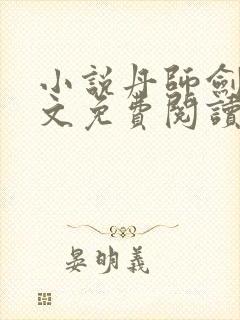 小說丹師劍
文免費閱讀
晏明義